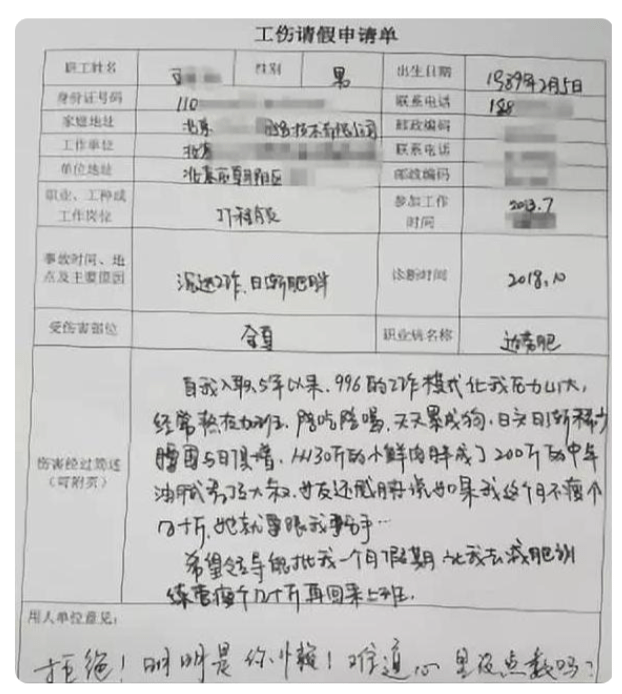 工伤请假申请单
职工姓名 性别 男 出生日期 1989年2月5日
身份证号码 110 联系电话 188
家庭地址 北京 技术有限公司 邮政编码
工作单位 北京 联系电话
单位地址 北京市朝阳区 邮政编码
职业、工种或 工程师 参加工作 2013.7
工作岗位 时间
事故时间、地 沉迷工作,日渐肥胖 诊断时间 2018.10
点及主要原因
受伤害部位 全身 职业病名称 过劳肥
自我入职5年以来,996的工作模式让我压力山大,
经常熬夜加班,陪吃陪喝,天天累成狗,日渐稀少
腰围与日俱增,从130斤的小鲜肉胖成了200斤的中年
伤害经过简述
(可附页)
油腻秃顶大叔,女友还威胁说如果我这个月不瘦个
几十斤,她就要跟我分手…
希望领导能批我一个月假期让我去减肥训
练营瘦个几十斤再回来上班.
用人单位意见:
拒绝!明明是你懒!难道心里没点数吗?